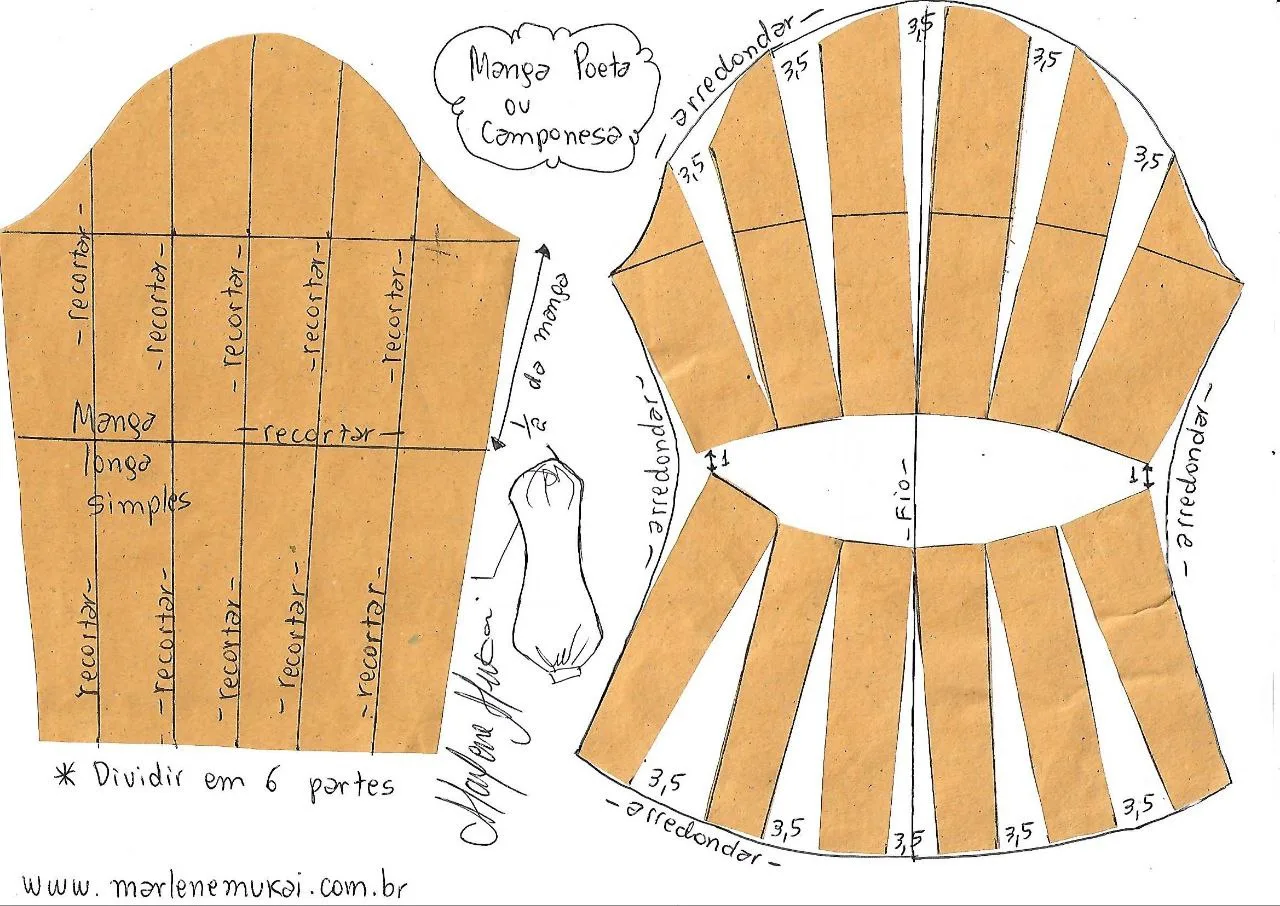 Manga Poeta
ou
Camponesa
- recortar -
- recortar -
- recortar -
- recortar -
- recortar -
Manga
longa
simples
- recortar -
recortar -
- recortar -
- recortar -
- recortar -
- recortar -
* Dividir em 6 partes
www.marlenemukai.com.br
1/2 da manga
Marlene Mukai
- arredondar -
3,5
3,5
3,5
3,5
3,5
- arredondar -
1
- Fio -
1
- arredondar -
3,5
3,5
3,5
3,5
3,5
- arredondar -